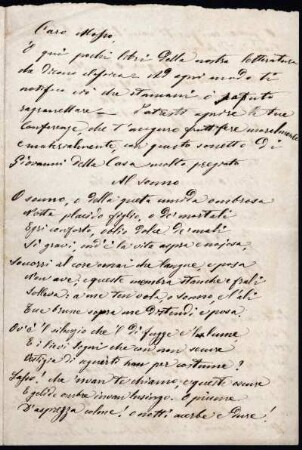 Caro Masso,
E qui pochi libri della nostra letteratura
da Diano ad ogni modo ti
notifico ciò che stamani ò potuto
raggranellare — Potresti aprire le tue
Conferenze, che t'auguro fruttifere moralmente
e materialmente, con questo sonetto di
Giovanni della Casa molto pregiato
Al Sonno
O sonno, o della queta umida ombrosa
Notte placido figlio, o de' mortali
Egri conforto, oblio dolce de' mali
Sì gravi, ond'è la vita aspra e nojosa,
Soccorri al core omai che langue, e posa
Non ave; e queste membra stanche e frali
Solleva: a me ten vola, o sonno, e l'ali
Tue brune sopra me distendi e posa.
Ov'è 'l silenzio che 'l dì fugge e 'l lume?
E i lievi sogni che con non secure
Vestigia di seguirti han per costume?
Lasso! che invan te chiamo, e queste oscure
E gelide ombre invan lusingo. O piume
D'asprezza colme! o notti acerbe e dure!